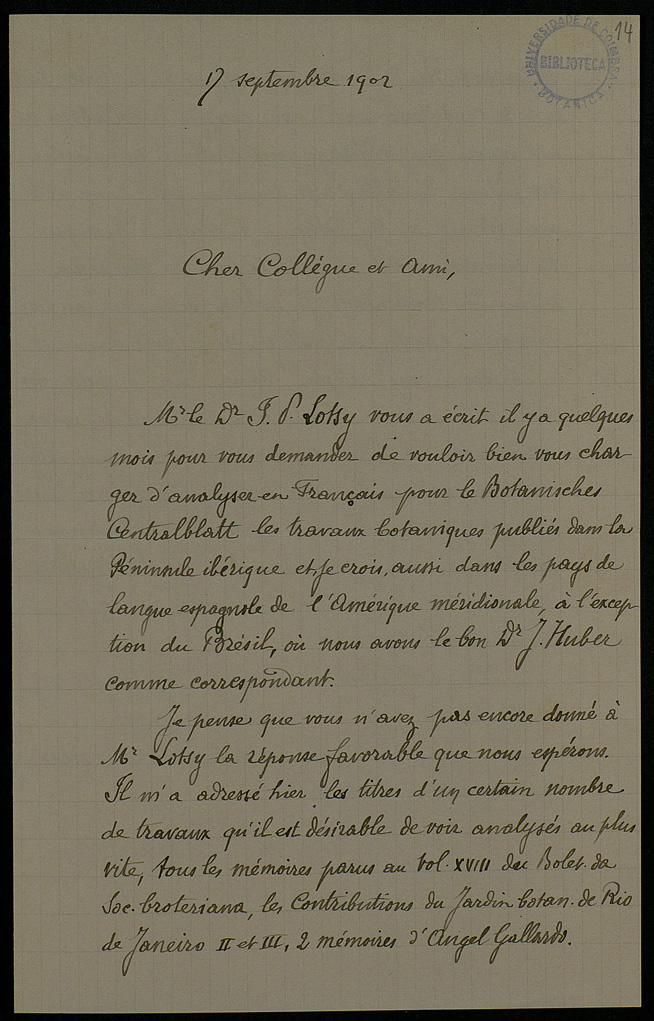 14
UNIVERSIDADE DE COIMBRA
BIBLIOTECA
BOTANICA
17 septembre 1902
Cher Collégue et Ami,
Mr le Dr J. P. Lotsy vous a écrit il y a quelques
mois pour vous demander de vouloir bien vous char-
ger d'analyser en Français pour le Botanisches
Centralblatt les travaux botaniques publiés dans la
Péninsule ibérique et, je crois, aussi dans les pays de
langue espagnole de l'Amérique méridionale, à l'excep-
tion du Brésil, où nous avons le bon Dr J. Huber
comme correspondant.
Je pense que vous n'avez pas encore donné à
Mr Lotsy la réponse favorable que nous espérons.
Il m'a adressé hier les titres d'un certain nombre
de travaux qu'il est désirable de voir analysés au plus
vite, tous les mémoires parus au Vol. XVIII du Bolet. da
Soc. broteriana, les Contributions du Jardin botan. de Rio
de Janeiro II et III, 2 mémoires d'Angel Gallardo.